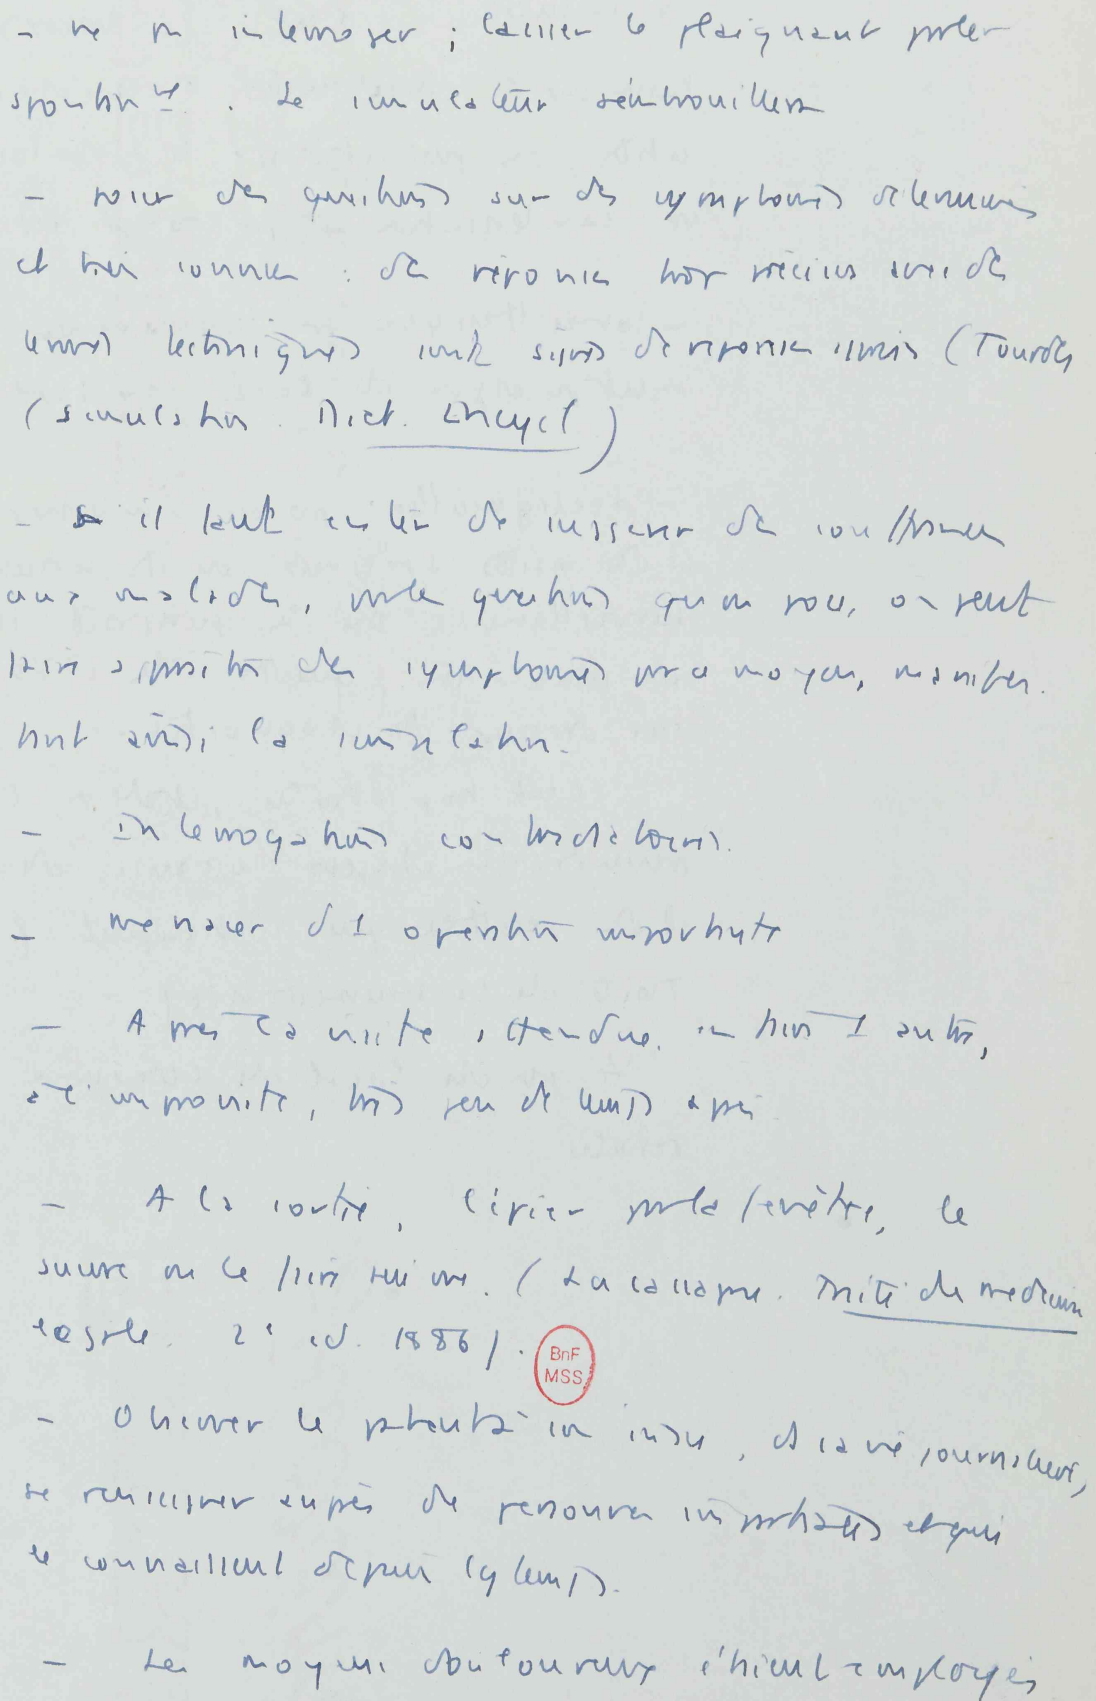 - ne pas interroger ; laisser le plaignant parler
spontant. Le simulateur s'embrouillera
- poser des questions sur des symptomes determinés
et bien connus : des réponses trop précises avec des
termes techniques sont signes de réponses apprises (Tourdes
(simulation Dict. Encycl)
- il faut éviter de suggérer des souffrances
aux malades, par les questions qu'on pose, on peut
faire apparaitre des symptomes par ce moyen, manifes-
tant ainsi la simulation.
- Interrogatoires contradictoires.
- menacer d'1 opération importante
- Après la visite attendue, en faire 1 autre,
à l'improviste, très peu de temps après
- A la sortie, l'épier par la fenêtre, le
suivre ou le faire suivre. (Lacassagne. Traité de medecine
legale. 2e ed. 1886).
BnF
MSS
- Observer le patient à son insu, ds sa vie journalière,
se renseigner auprès de personnes impartiales et qui
le connaissent depuis lgtemps.
- Les moyens douloureux étaient employés